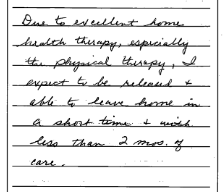 Due to excellent home
health therapy, especially
the physical therapy, I
expect to be released +
able to leave home in
a short time + with
less than 2 mos. of
care.